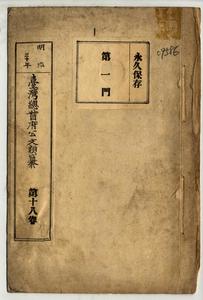 永久保存
第一門
明治
三十年
臺灣總督府公文類纂
第十八卷